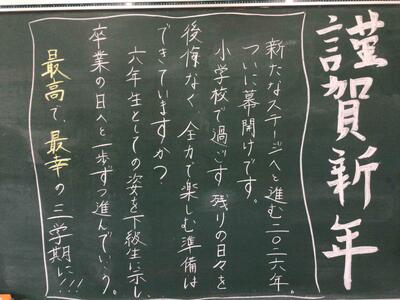 謹賀新年
新たなステージへと進む二〇二六年。
ついに幕開けです。
小学校で過ごす残りの日々を
後悔なく全力で楽しむ準備は
できていますか?
六年生としての姿を下級生に示し
卒業の日へと一歩ずつ進んでいこう。
最高で、最幸の三学期に!!!